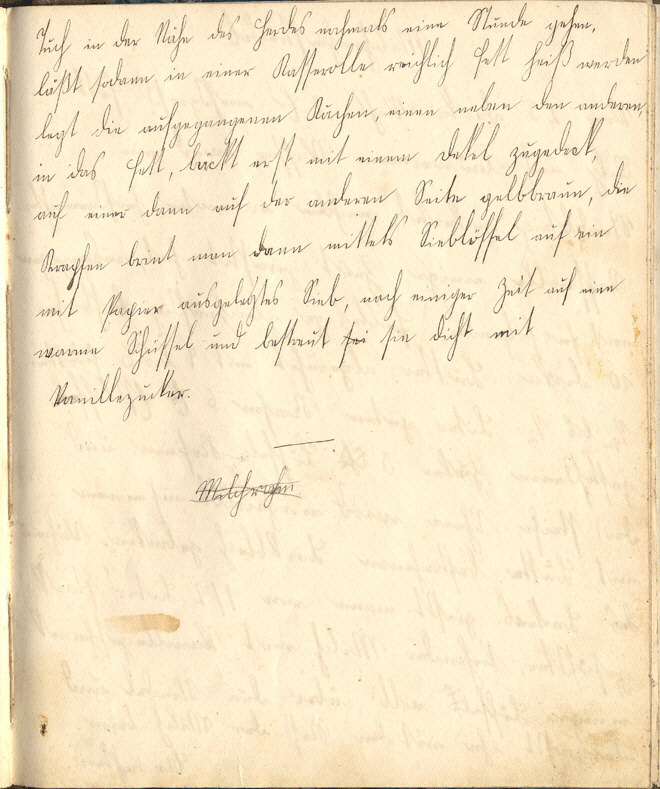 Tuch in der Nähe des Herdes nochmals eine Stunde gehen,
läßt sodann in einer Kasserolle reichlich Fett heiß werden
legt die aufgegangenen Kuchen, einen neben den anderen,
in das Fett, bäckt erst mit einem Dekel zugedeckt,
auf einer dann auf der anderen Seite gelbbraun, die
Krapfen brint man dann mittels Sieblöffel auf ein
mit Papier ausgelegtes Sieb, nach einiger Zeit auf eine
warme Schüssel und bestreut sei sie dicht mit
Vanillezucker.
Milchrahm